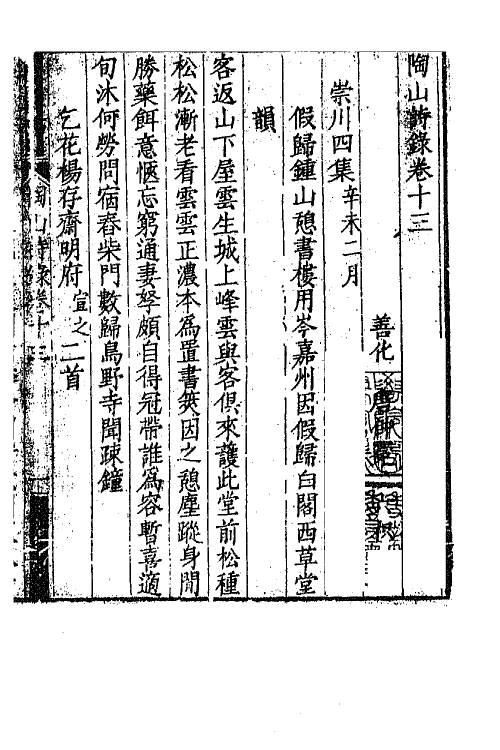 陶山詩錄卷十三
善化唐仲冕
崇川四集辛未二月
假歸鍾山憩書樓用岑嘉州因假歸白閣西草堂
韻
客返山下屋雲生城上峰雲與客俱來護此堂前松種
松松漸老看雲雲正濃本為置書筴因之憩塵蹤身閒
勝藥餌意愜忘窮通妻孥頗自得冠帶誰為容暫喜適
旬沐何勞問宿舂柴門數歸鳥野寺聞疎鐘
乞花楊存齋明府宜之二首
陶山詩錄卷十三